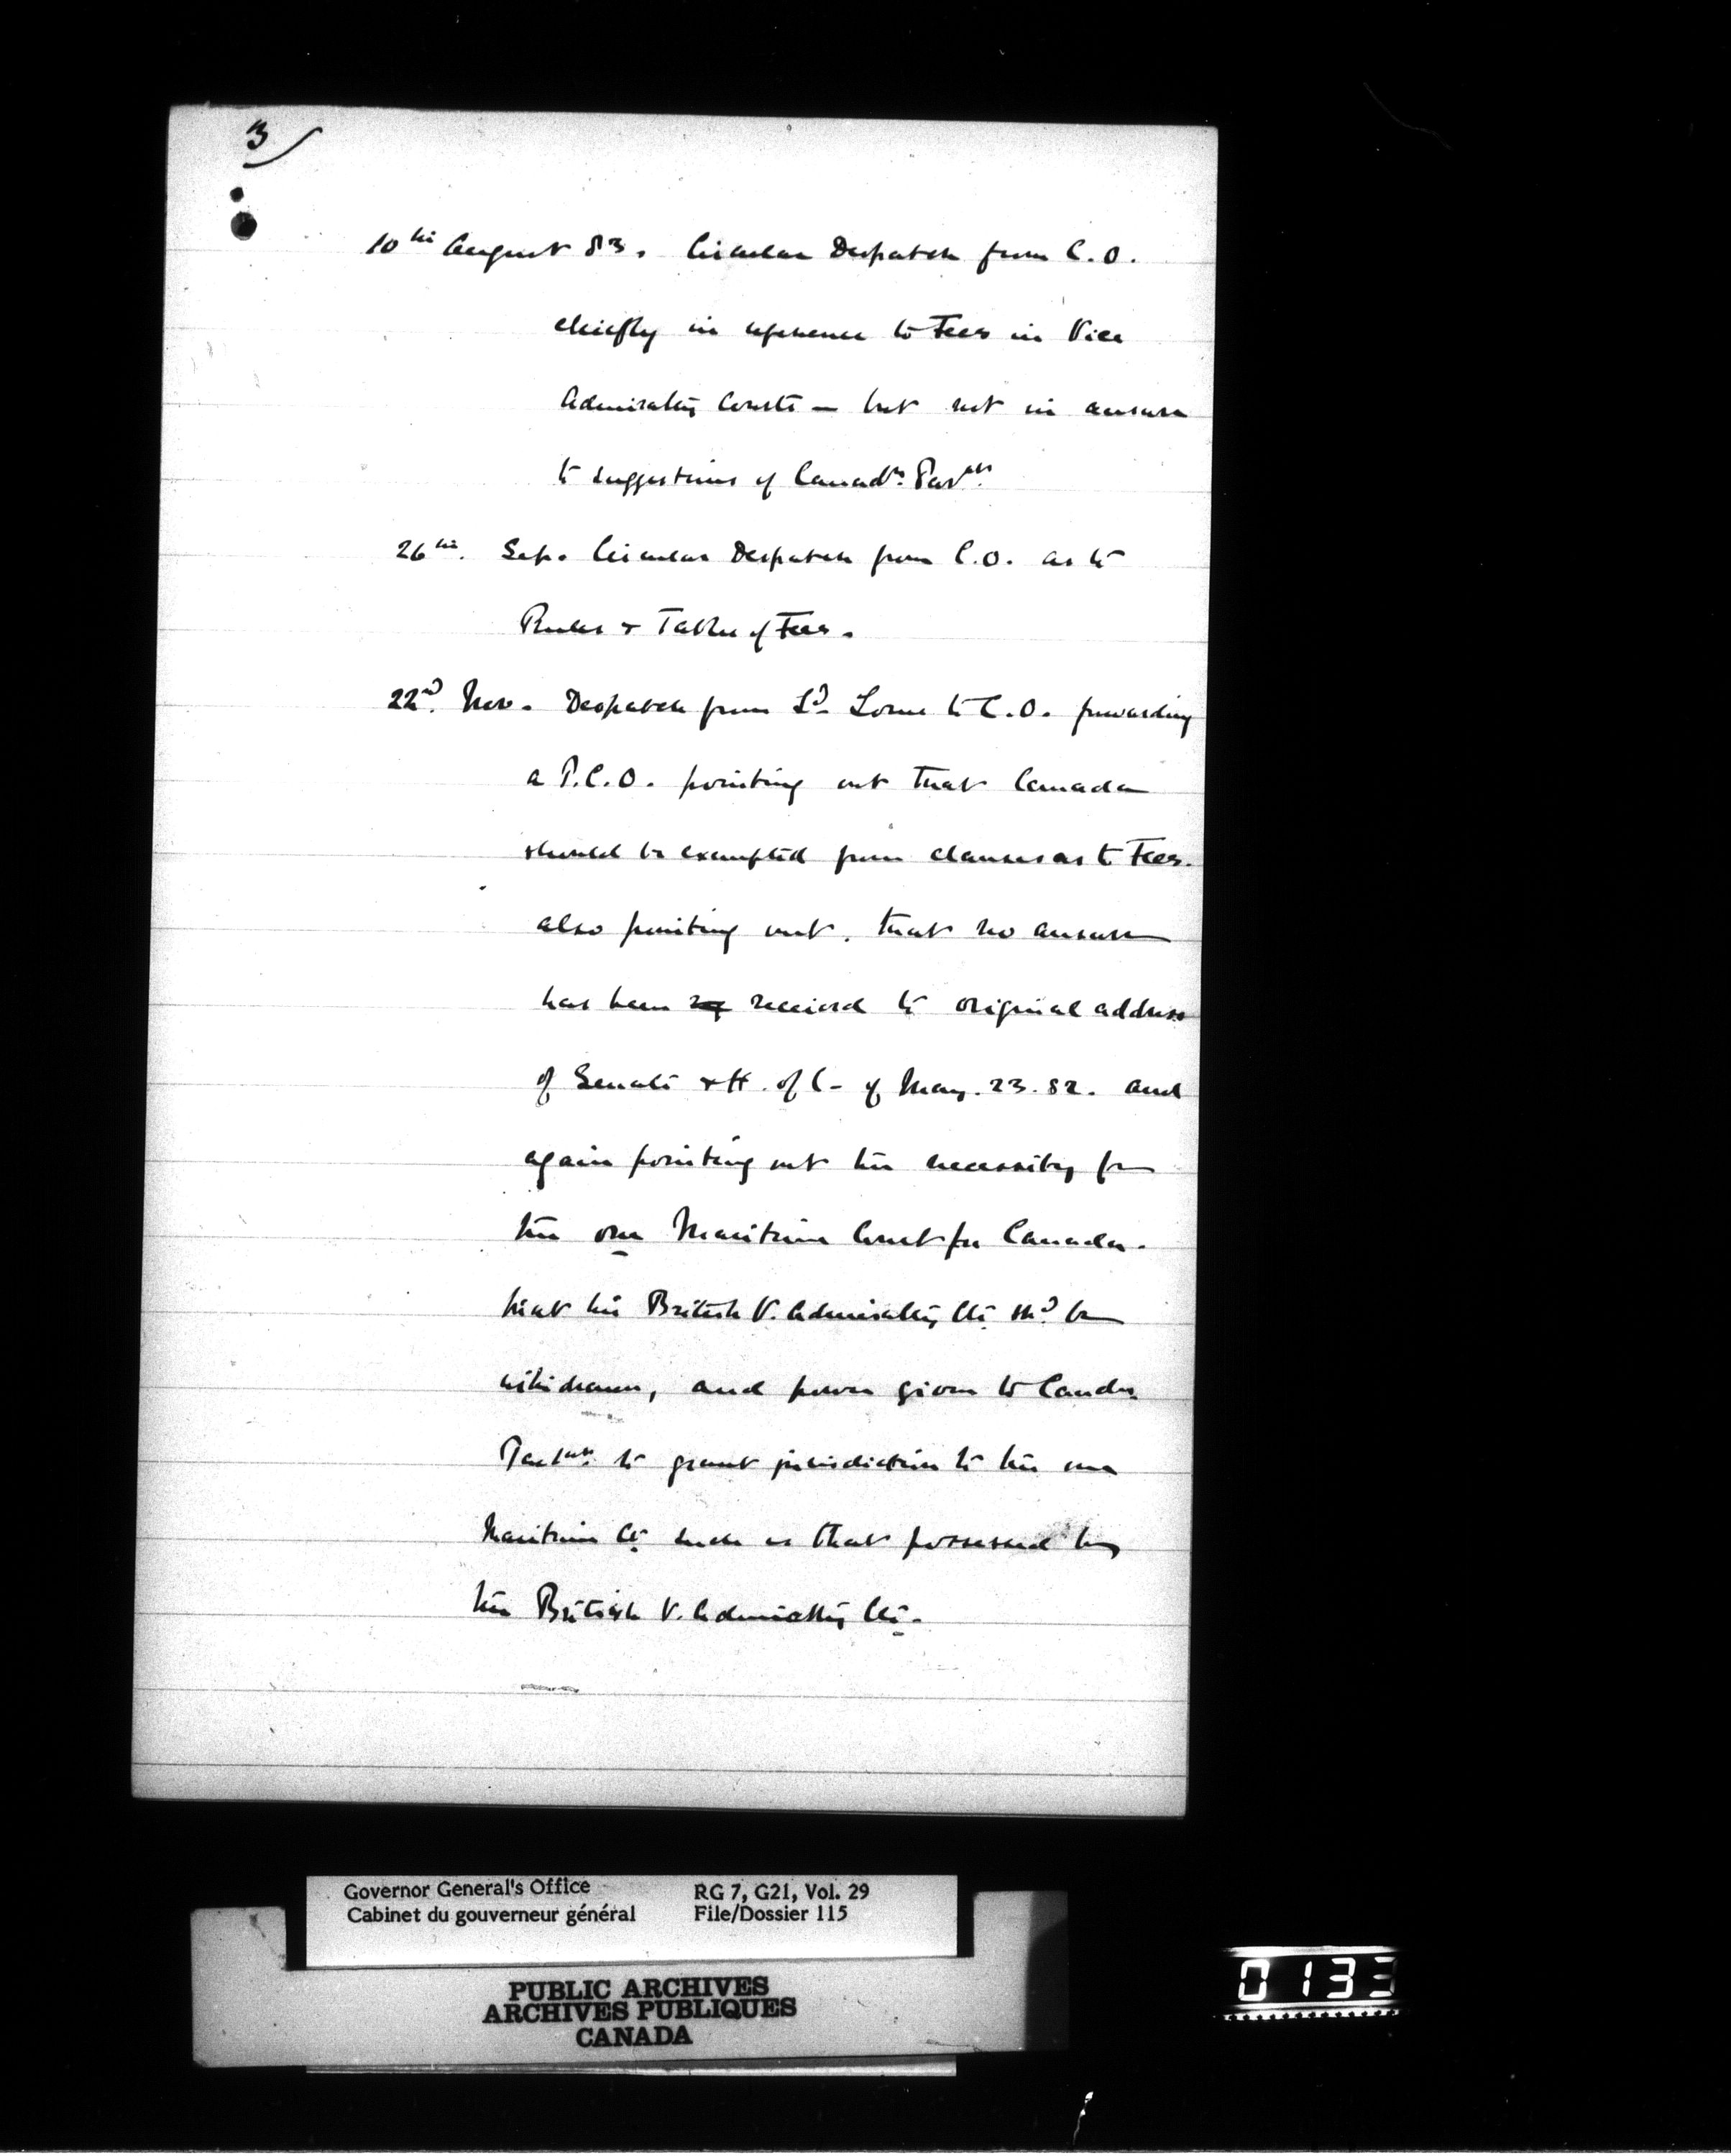 3/
10th August 83. Circular Despatch from C.O.
chiefly in reference to Fees in Vice
Admiralty Courts — but not in answer
to suggestions of Canadn. Parlt.
26th. Sep. Circular Despatch from C.O. as to
Rules & Tables of Fees.
22nd. Nov. Despatch from Ld. Lorne to C.O. forwarding
a P.C.O. pointing out that Canada
should be exempted from clauses as to Fees.
also pointing out, that no answer
has been received to original address
of Senate & H. of C. of May. 23. 82. and
again pointing out the necessity for
the one Maritime Court for Canada.
that the British V. Admiralty Cts. shd. be
withdrawn, and power given to Canda.
Parlmt. to grant jurisdiction to the one
Maritime Ct. such as that possessed by
the British V. Admiralty Cts.
Governor General's Office
Cabinet du gouverneur général
RG 7, G21, Vol. 29
File/Dossier 115
PUBLIC ARCHIVES
ARCHIVES PUBLIQUES
CANADA
0133